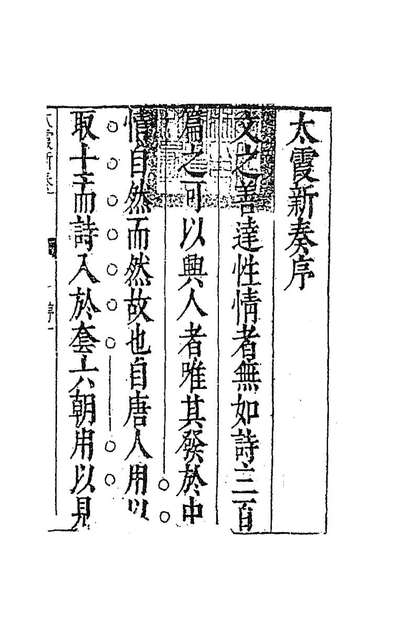 太霞新奏序
文之善達性情者無如詩三百
篇之可以興人者唯其發於中
情自然而然故也自唐人用以
取士而詩入於套六朝用以見